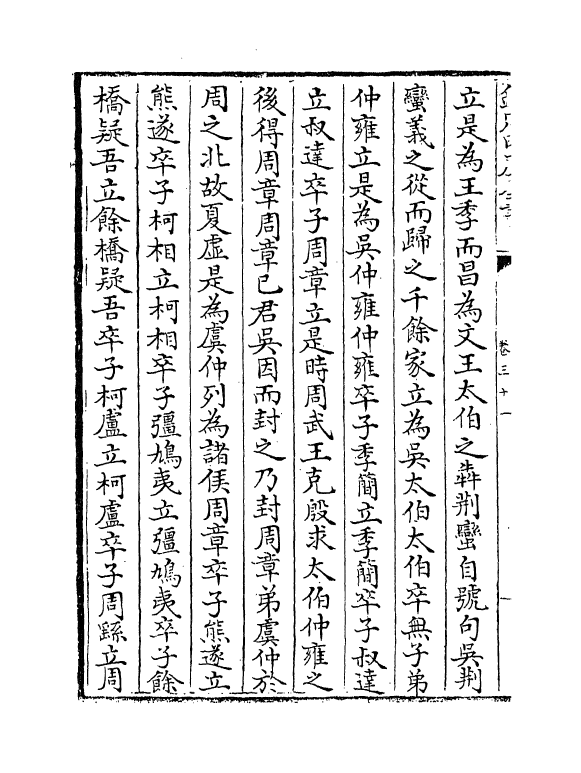 卷三十一
立是為王季而昌為文王太伯之犇荆蠻自號句吳荆
蠻義之從而歸之千餘家立為吳太伯太伯卒無子弟
仲雍立是為吳仲雍仲雍卒子季簡立季簡卒子叔達
立叔達卒子周章立是時周武王克殷求太伯仲雍之
後得周章周章已君吳因而封之乃封周章弟虞仲於
周之北故夏虛是為虞仲列為諸侯周章卒子熊遂立
熊遂卒子柯相立柯相卒子彊鳩夷立彊鳩夷卒子餘
橋疑吾立餘橋疑吾卒子柯盧立柯盧卒子周繇立周